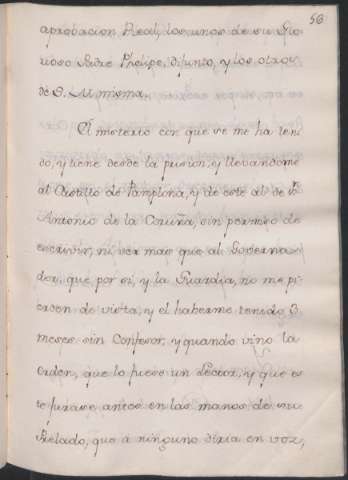 56
aprobacion Real, los unos de su Glo
rioso Padre Phelipe, difunto, y los otros
de S. M. misma.
El misterio con que se me ha teni
do, y tiene desde la prision, y llevandome
al Castillo de Pamplona, y de este al de Sn.
Antonio de la Coruña, sin permiso de
escrivir, ni ver mas que al Governa-
dor, que por si, y la Guardia, no me pi-
erden de vista, y el haberme tenido 3
meses sin Confesor, y quando vino la
orden, que lo fuese un Lector, y que es
te jurase antes en las manos de su
Prelado, que à ninguno diria en voz,